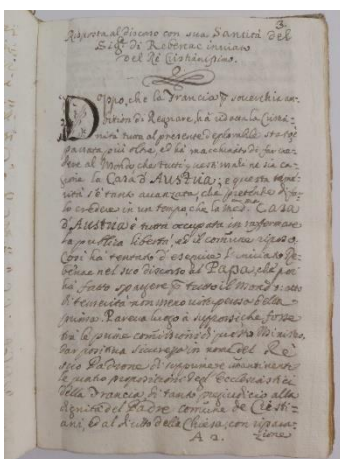 3.
Risposta al discorso con sua Santità del
Sig.r di Rebenac inviato
del Rè Cristianissimo.
Doppo, che la Francia p soverchia am-
bitione di Regnare, hà ridotta la Cristia-
nità tutta al presente deplorabile stato
passata più oltre, ed hà macchinato di far ve-
dere al Mondo, che tutti questi mali ne sia ca-
gione la Casa d'Austria; e questa
s'è tanto avanzata, che pretende di far
lo credere in un tempo, che la med.ma Casa
d'Austria è tutta occupata in
la publica libertà, ed il comune riposo.
Così hà tentato d'eseguire l'inviato Re-
benac nel suo discorso al Papa, che poi
hà fatto spargere p tutto il mondo
di temerità non meno vituperosa della
prima. Pareva luogo à supporsi che fosse
trà le prime commissioni di questo Ministro,
dar positiva sicurezza in nome del Rè
suo Padrone di
le proposizioni degl' Ecclesiastici
della Francia, di tanto pregiudicio alla
dignità del Padre comune de Cristi-
ani, ed al dritto della Chiesa, con ripara-
A 2. zione